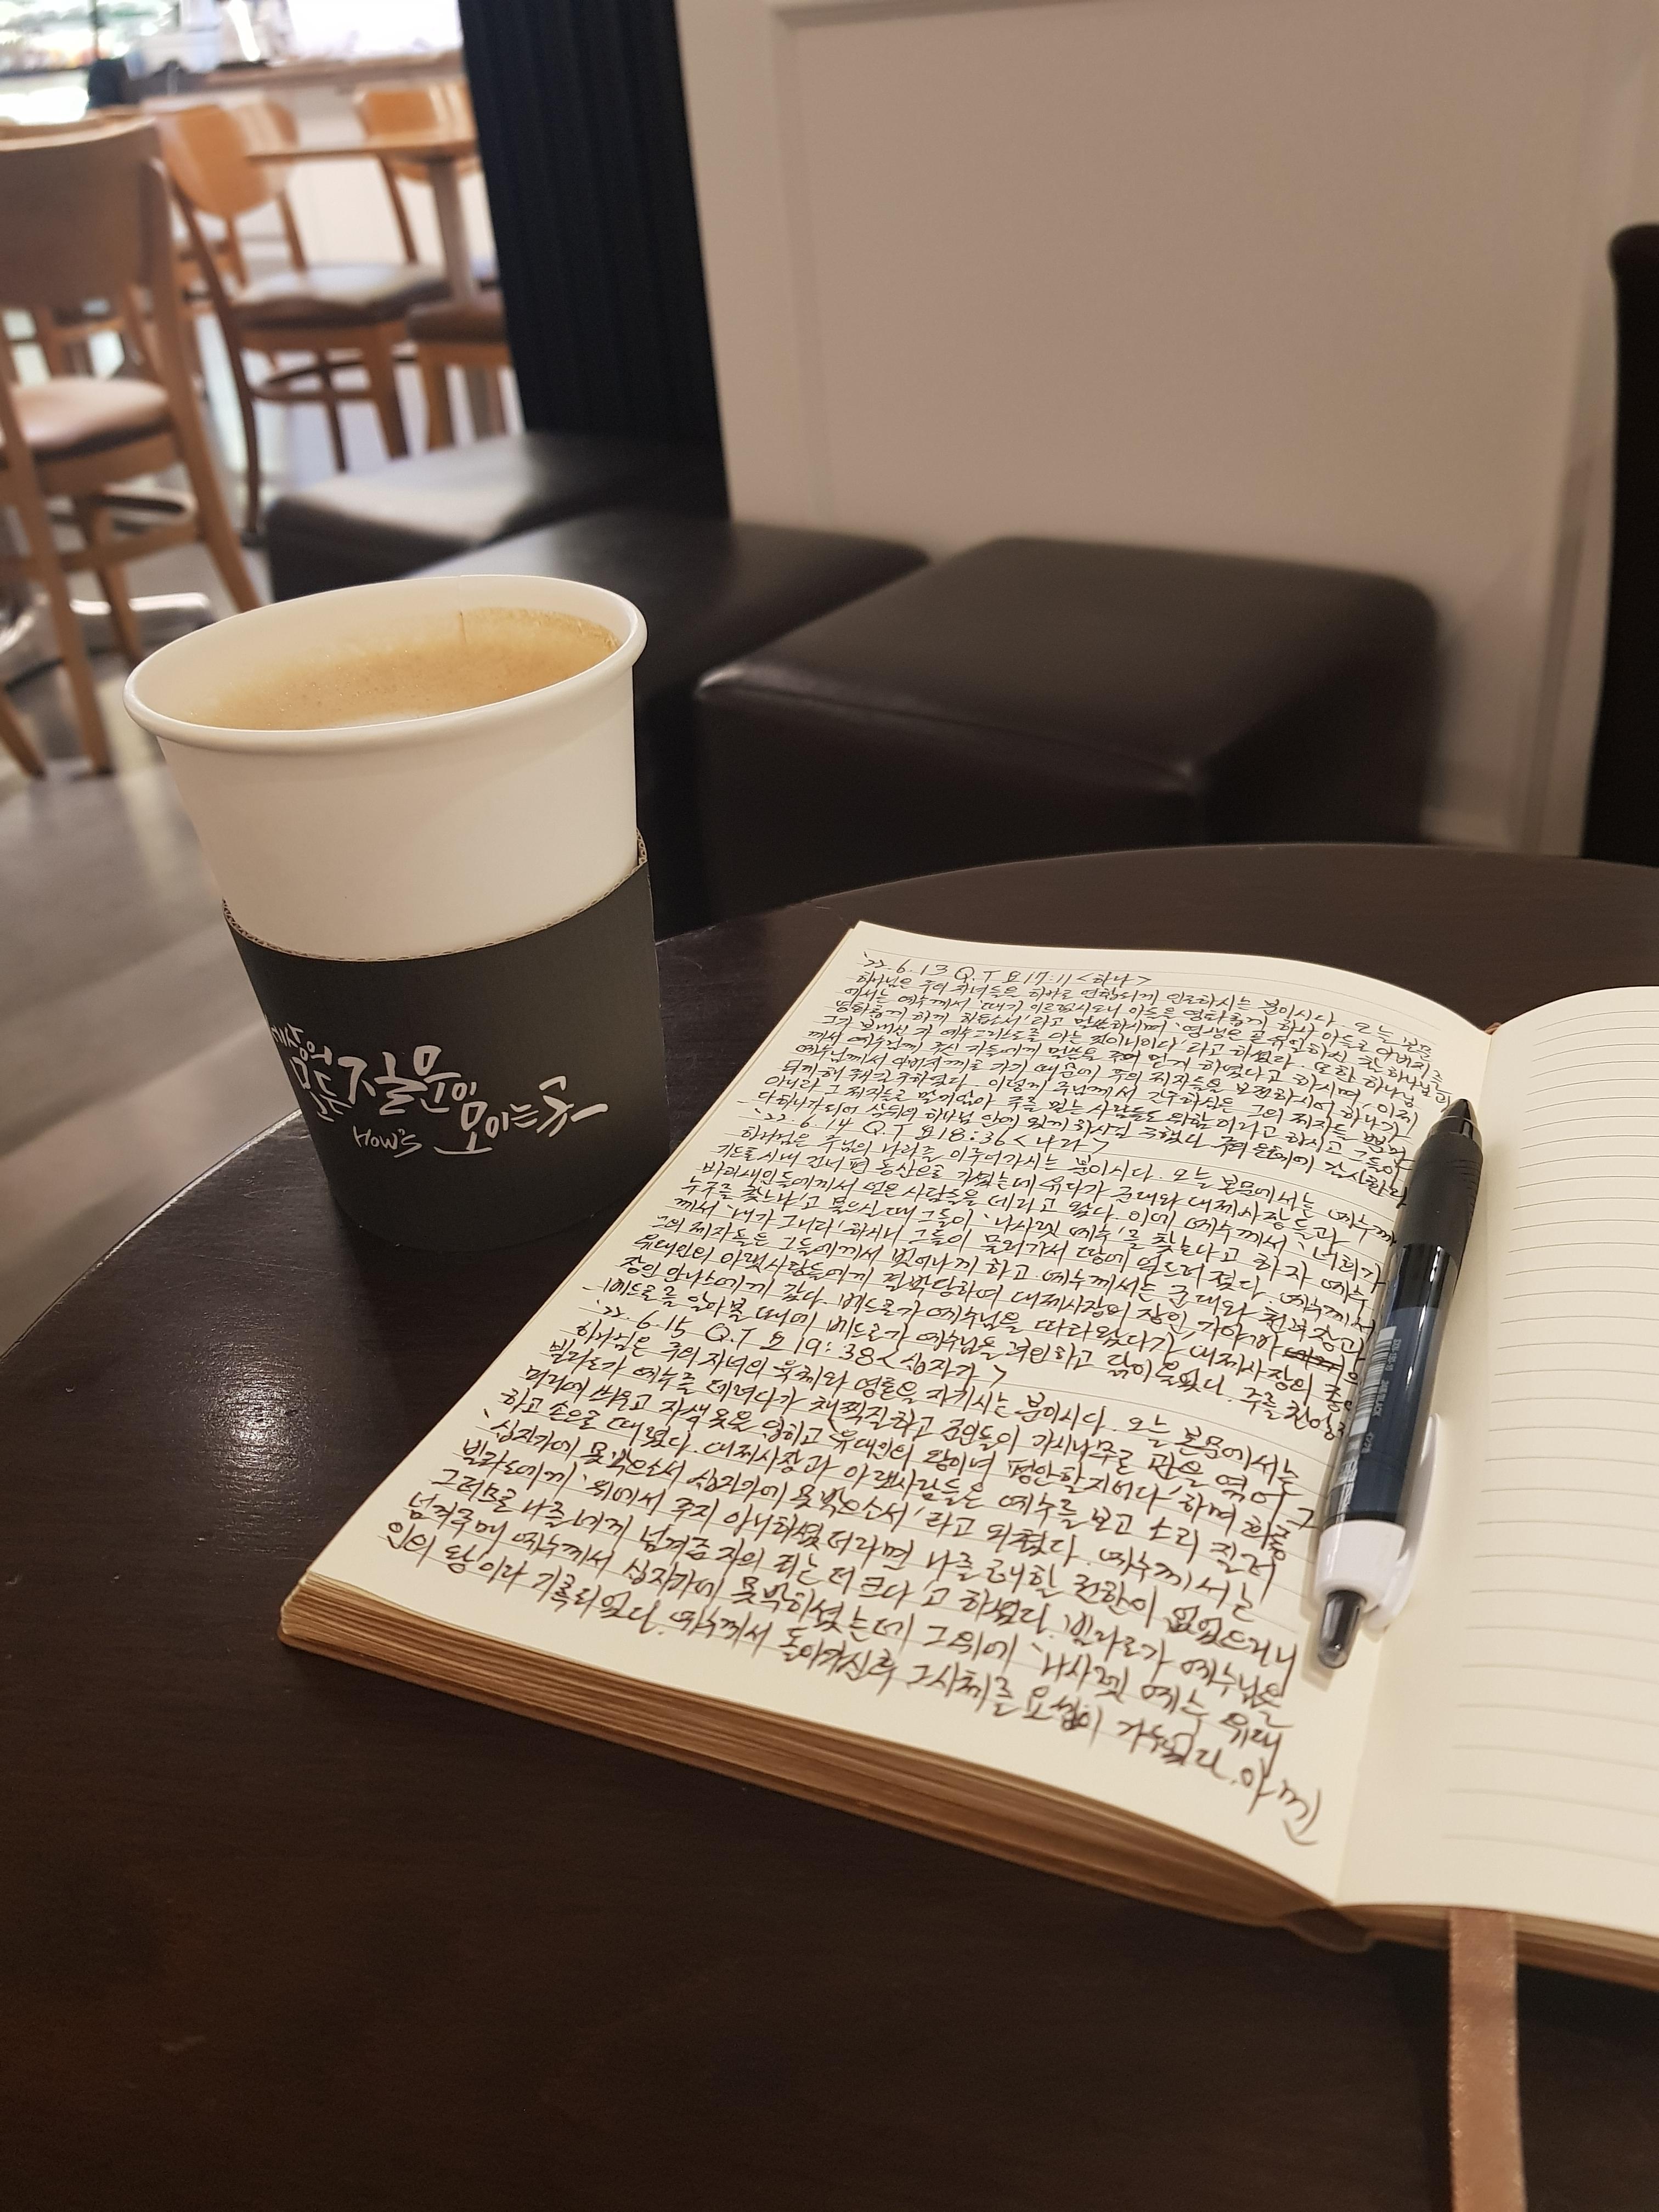 세상의
모든 질문이
모이는 곳
HOW's
'22. 6. 13 Q.T 요 17:11 <하나>
하나님은 주의 자녀들을 하나로 연합되게 인도하시는 분이시다. 오늘 본문
에서는 예수께서 '때가 이르렀사오니 아들을 영화롭게 하사 아들로 아버지를
영화롭게 하게 하옵소서'라고 말씀하시며 '영생은 곧 유일하신 참 하나님과
그가 보내신 자 예수 그리스도를 아는 것이니이다'라고 하셨다. 또한 하나님
께서 예수님께 주신 자들에게 말씀을 주어 믿게 하였다고 하시며, 이제
예수님께서 아버지께로 가기 때문에 주의 제자들을 보전하시어 하나가
되게 해 주하셨다. 이렇게 주님께서 간구하심은 그의 제자들 뿐만
아니라 그 제자들로 말미암아 주를 믿는 사람들도 위함이라고 하시고 그들이
다 하나가 되어 하나님 안에 있게 하시길 구했다. 주의 은혜에 감사합니다
'22. 6. 14 Q.T 요 18:36 <나라>
하나님은 주님의 나라를 이루어가시는 분이시다. 오늘 본문에서는 예수께서
기드론 시내 건너편 동산으로 가셨는데 유다가 군대와 대제사장들과
바리새인들에게서 얻은 사람들을 데리고 왔다. 이에 예수께서 '너희가
누구를 찾느냐'고 물으실 때 그들이 '나사렛 예수'를 찾는다고 하자 예수
께서 '내가 그니라' 하시니 그들이 물러가서 땅에 엎드러졌다. 예수께서
그의 제자들은 그들에게서 벗어나게 하고 예수께서는 군대와 천부장과
유대인의 아랫사람들에게 결박당하여 대제사장의 장인, 가야바
장인 안나스에게 갔다. 베드로가 예수님을 따라왔다가 대제사장의 종이
베드로를 알아볼 때에 베드로가 예수님을 부인하고 닭이 울었다. 주를 찬양
'22. 6. 15 Q.T 요 19:38 <십자가>
하나님은 주의 자녀의 육체와 영혼을 지키시는 분이시다. 오늘 본문에서는
빌라도가 예수를 데려다가 채찍질하고 군인들이 가시나무로 관을 엮어 그
머리에 씌우고 자색 옷을 입히고 '유대인의 왕이여 평안할지어다' 하며 희롱
하고 손으로 때렸다. 대제사장과 아랫사람들은 예수를 보고 소리 질러
'십자가에 못 박으소서 십자가에 못 박으소서'라고 외쳤다. 예수께서는
빌라도에게 '위에서 주지 아니하셨더라면 나를 해할 권한이 없었으리니
그러므로 나를 네게 넘겨준 자의 죄는 더 크다'고 하셨다. 빌라도가 예수님을
넘겨주매 예수께서 십자가에 못 박히셨는데 그 위에 '나사렛 예수 유대
인의 왕'이라 기록되었다. 예수께서 돌아가신 후 그 시체를 요셉이 가져갔다. 아멘